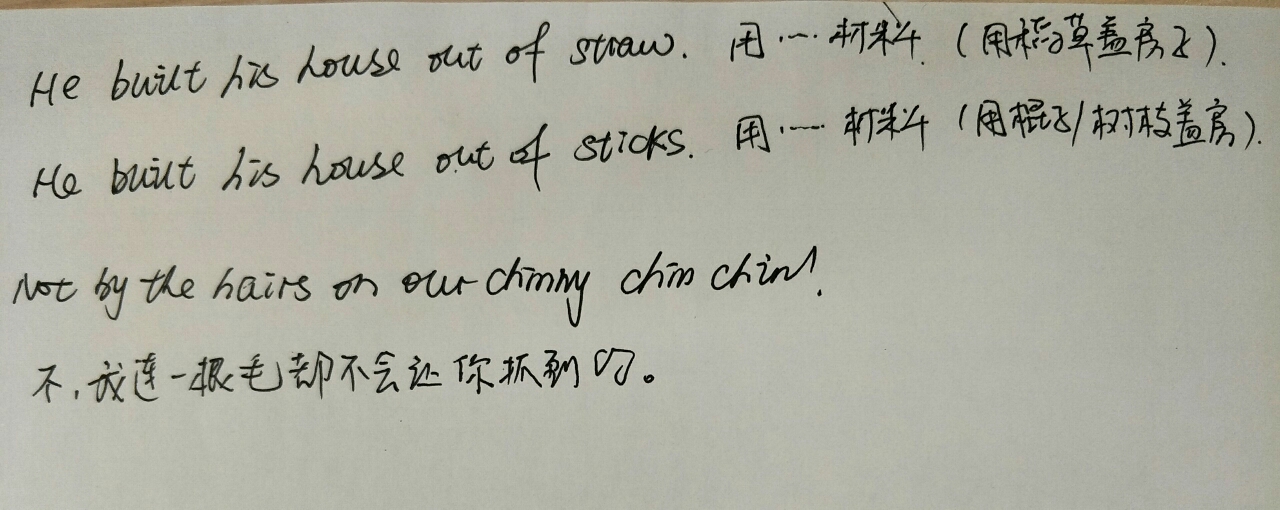 He built his house out of straw. 用…材料 (用稻草盖房子).
He built his house out of sticks. 用…材料 (用棍子/树枝盖房).
Not by the hairs on our chinny chin chin!
不,我连一根毛都不会让你抓到的。